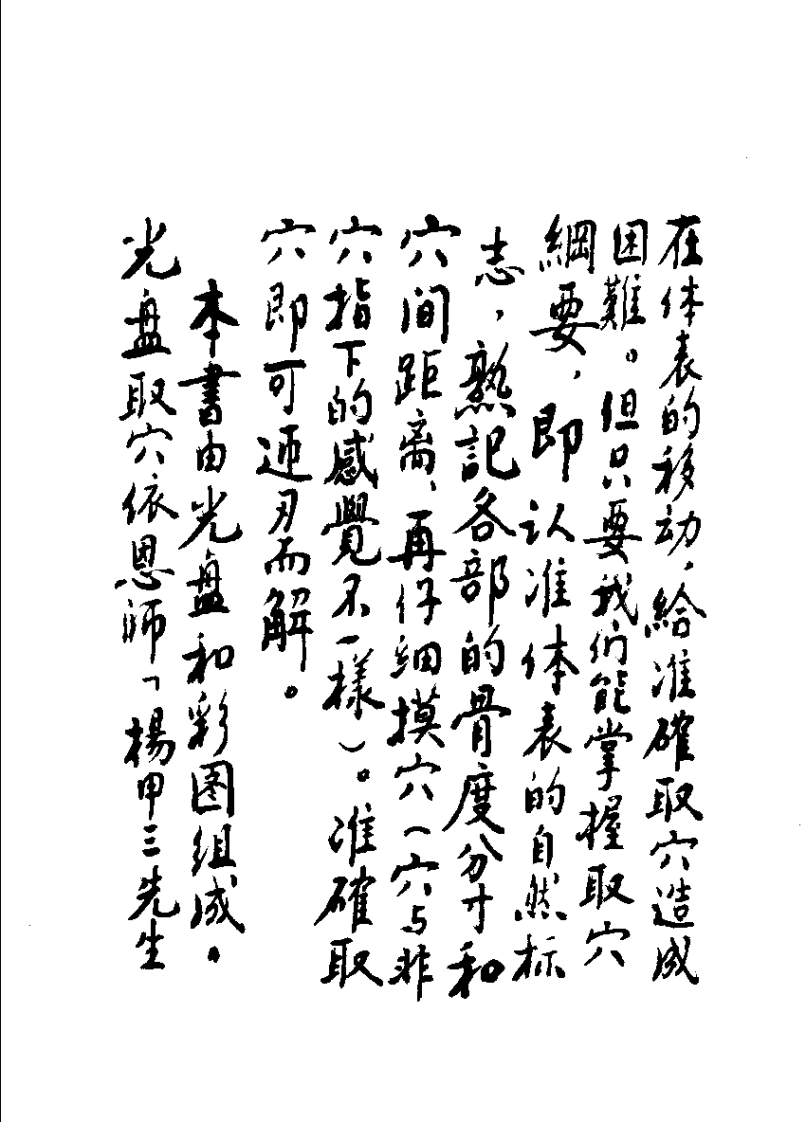 在体表的移动，給准確取穴造成
困難。但只要我们能掌握取穴
綱要，即认准体表的自然标
志，熟記各部的骨度分寸和
穴间距离，再仔細摸穴（穴与非
穴指下的感覺不一樣）。准確取
穴即可迎刃而解。
本書由光盘和彩图组成。
光盘取穴依恩师「楊甲三先生